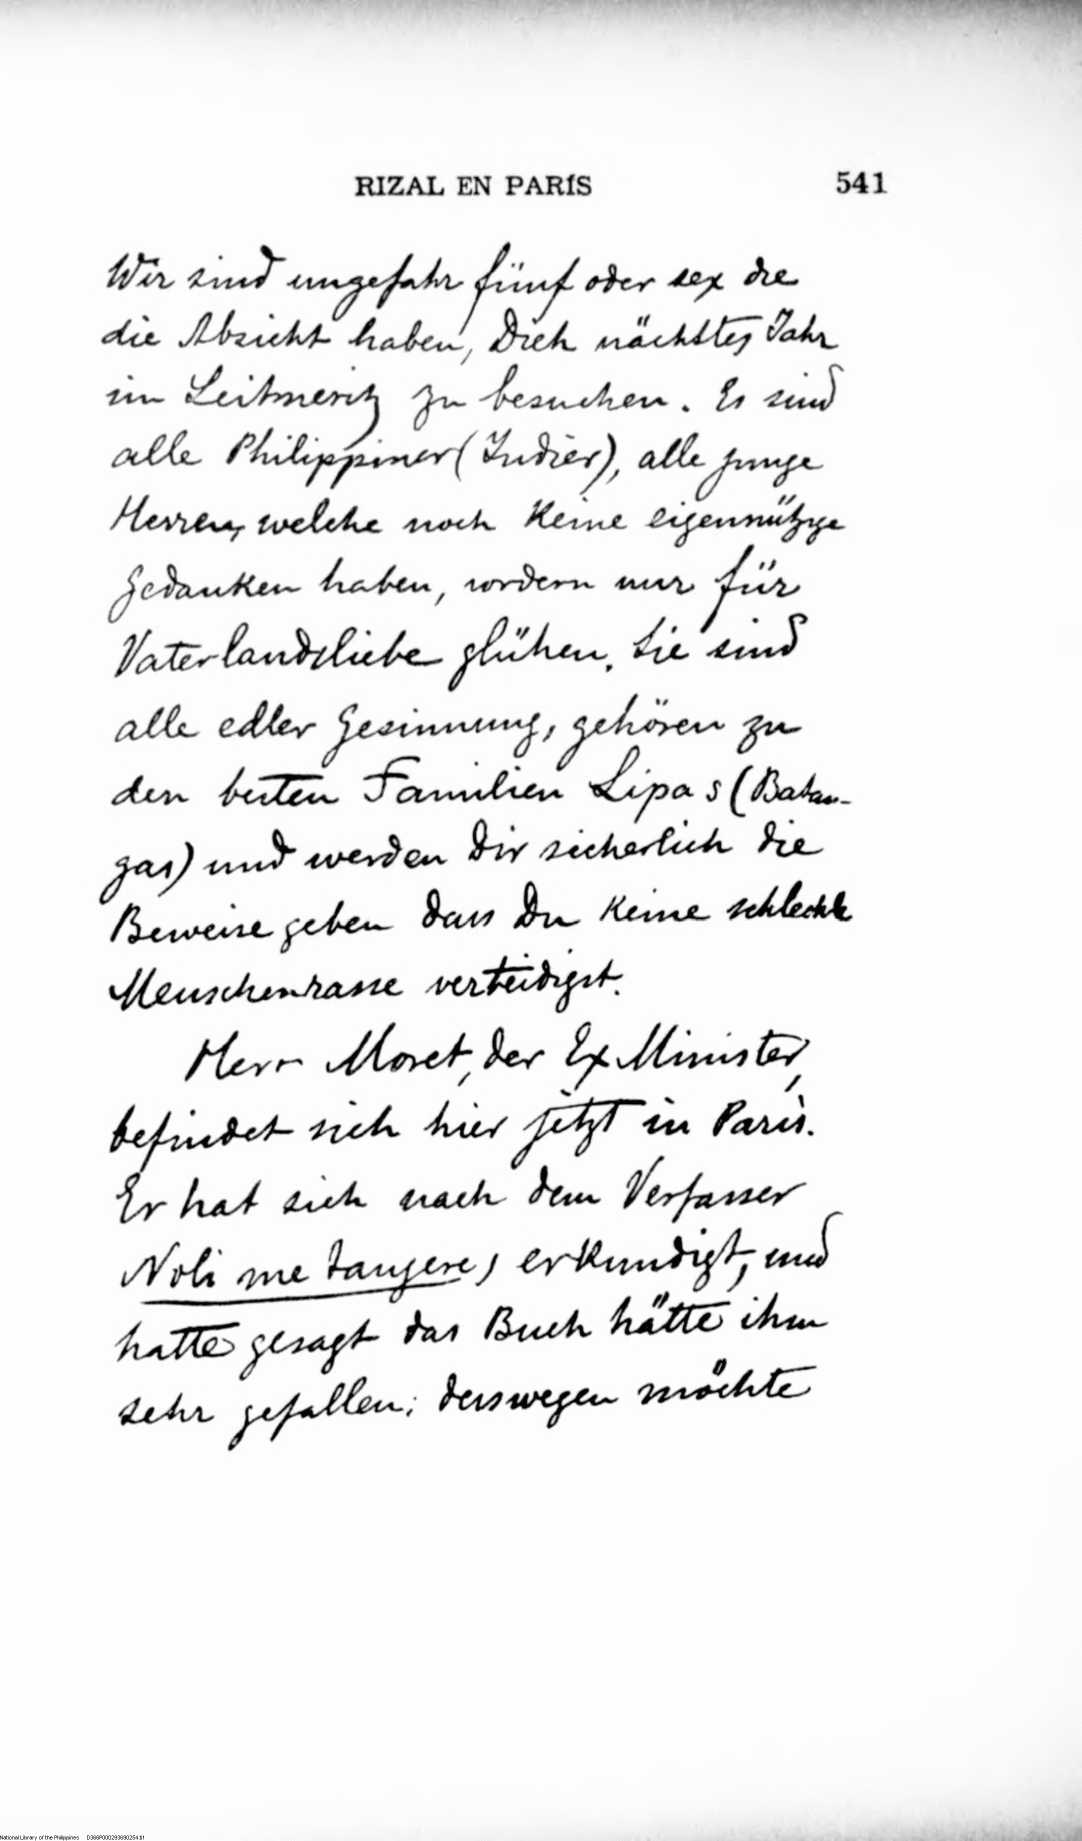 RIZAL EN PARÍS 541
Wir sind ungefahr fünf oder sex die
die Absicht haben, Dich nächstes Jahr
im Leitmeritz zu besuchen. Es sind
alle Philippiner (Indier), alle junge
Herren, welche noch keine eigennützige
Gedanken haben, sondern nur für
Vaterlandsliebe glühen. Sie sind
alle edler Gesinnung, gehören zu
den besten Familien Lipas (Batan-
gas) und werden Dir sicherlich die
Beweise geben dass Du keine schlechte
Menschenrasse verteidigst.
Herr Moret, der Ex Minister,
befindet sich hier jetzt in Paris.
Er hat sich nach dem Verfasser
Noli me tangere, erkundigt, und
hatte gesagt das Buch hätte ihm
sehr gefallen; desswegen möchte
National Library of the Philippines